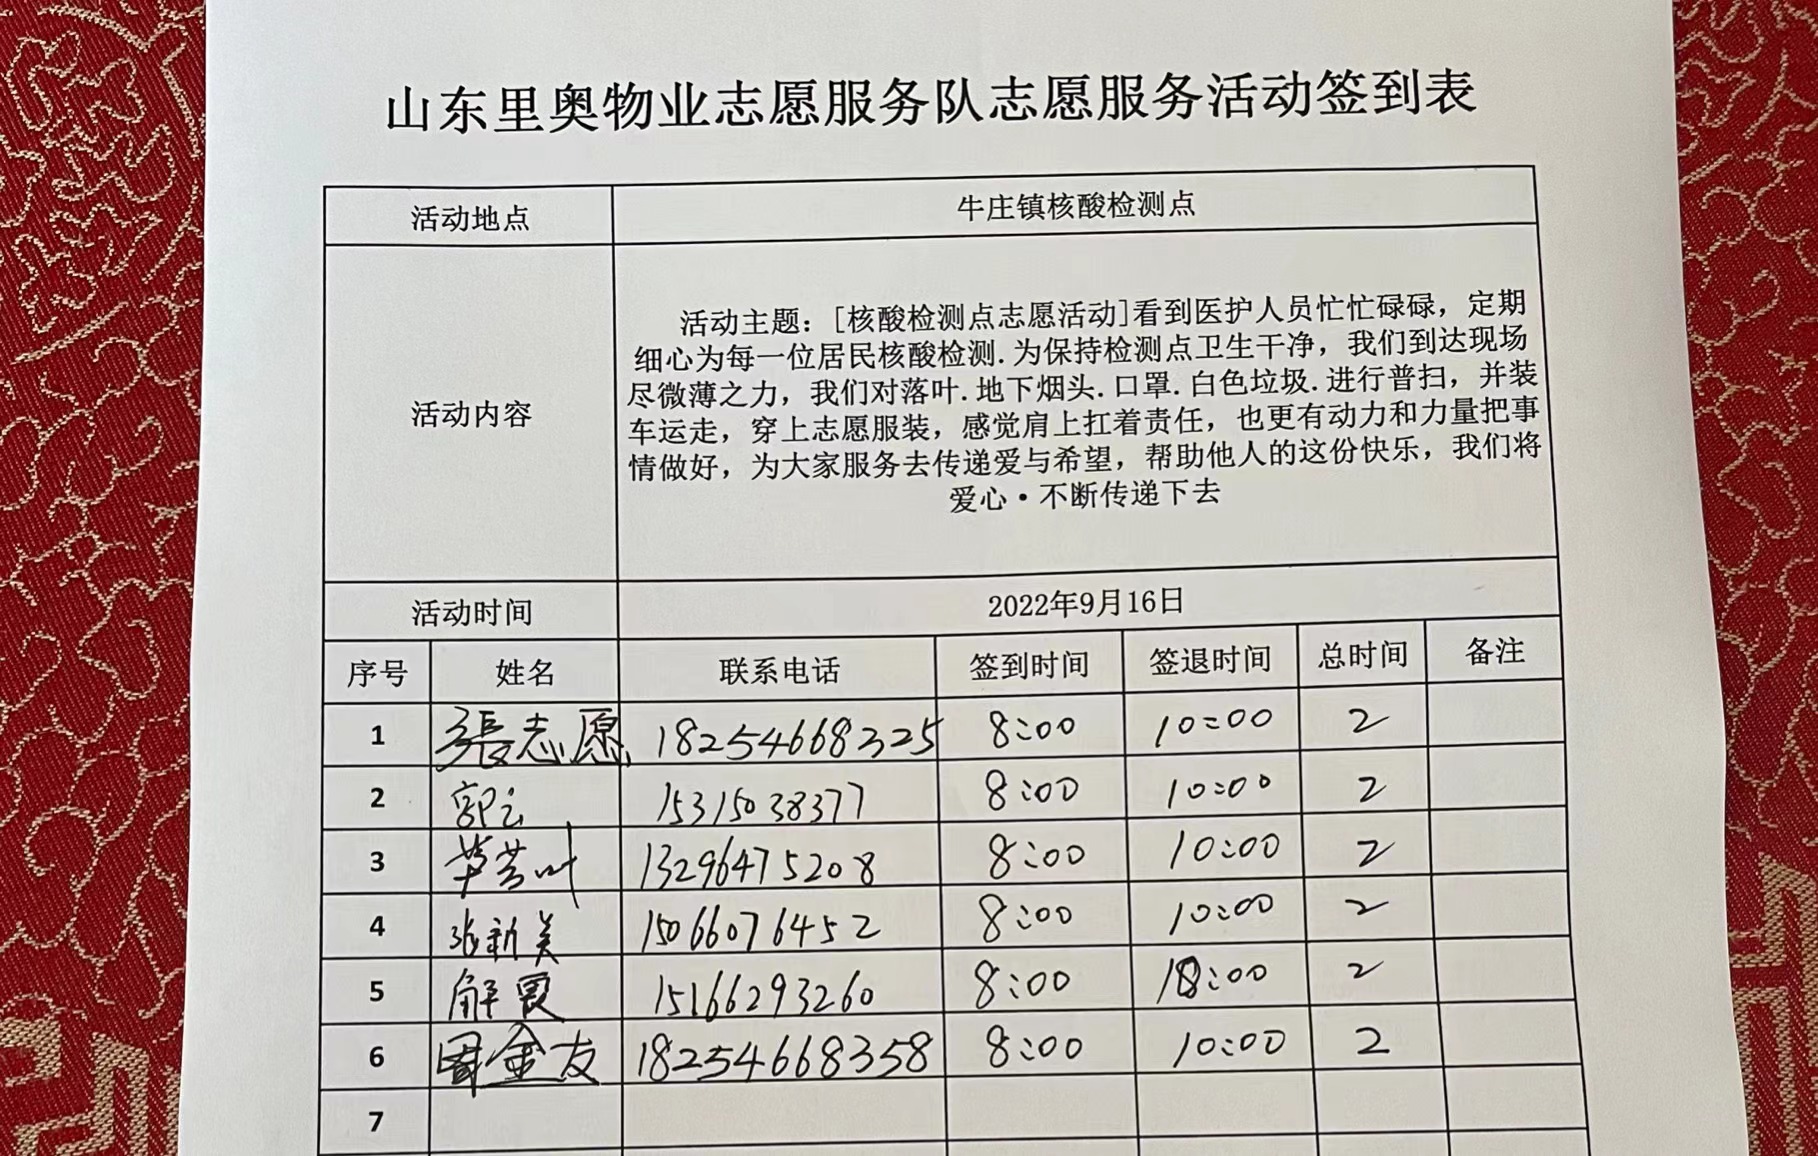 山东里奥物业志愿服务队志愿服务活动签到表
活动地点 牛庄镇核酸检测点
活动内容
活动主题：[核酸检测点志愿活动]看到医护人员忙忙碌碌，定期
细心为每一位居民核酸检测.为保持检测点卫生干净，我们到达现场
尽微薄之力，我们对落叶.地下烟头.口罩.白色垃圾.进行普扫，并装
车运走，穿上志愿服装，感觉肩上扛着责任，也更有动力和力量把事
情做好，为大家服务去传递爱与希望，帮助他人的这份快乐，我们将
爱心·不断传递下去
活动时间 2022年9月16日
序号 姓名 联系电话 签到时间 签退时间 总时间 备注
1 張志愿 18254668325 8:00 10:00 2
2 郭云 15315038377 8:00 10:00 2
3 13296475208 8:00 10:00 2
4 张新美 15066076452 8:00 10:00 2
5 解霞 15166293260 8:00 10:00 2
6 周金友 18254668358 8:00 10:00 2
7